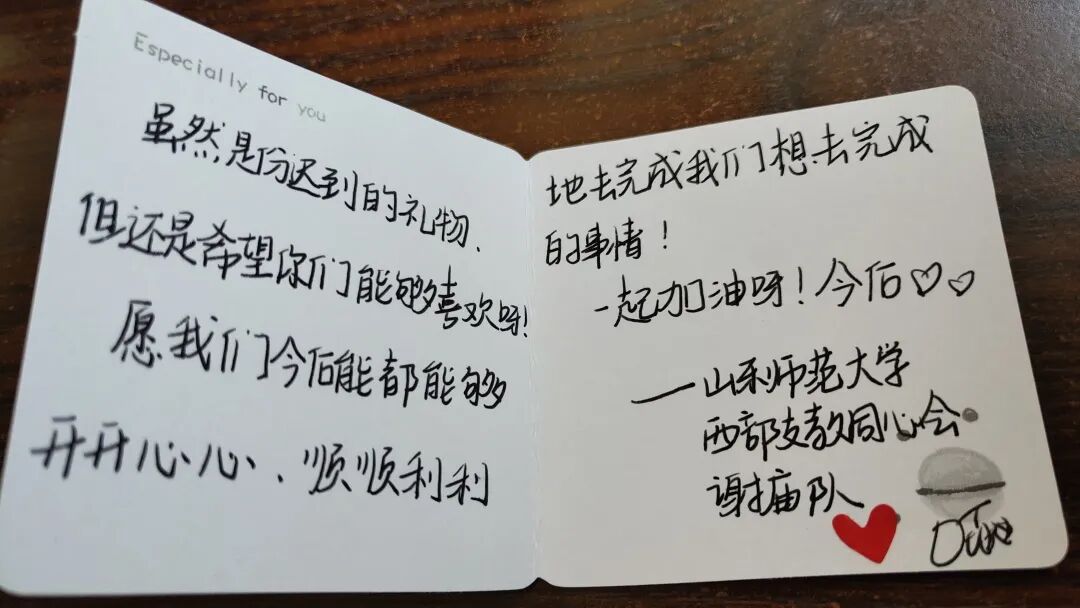 Especially for you
虽然是份迟到的礼物、
但还是希望你们能够喜欢呀!
愿我们今后能都能够
开开心心、顺顺利利
地去完成我们想去完成
的事情!
一起加油呀!今后♡♡
——山东师范大学
西部支教同心会
谢庙队